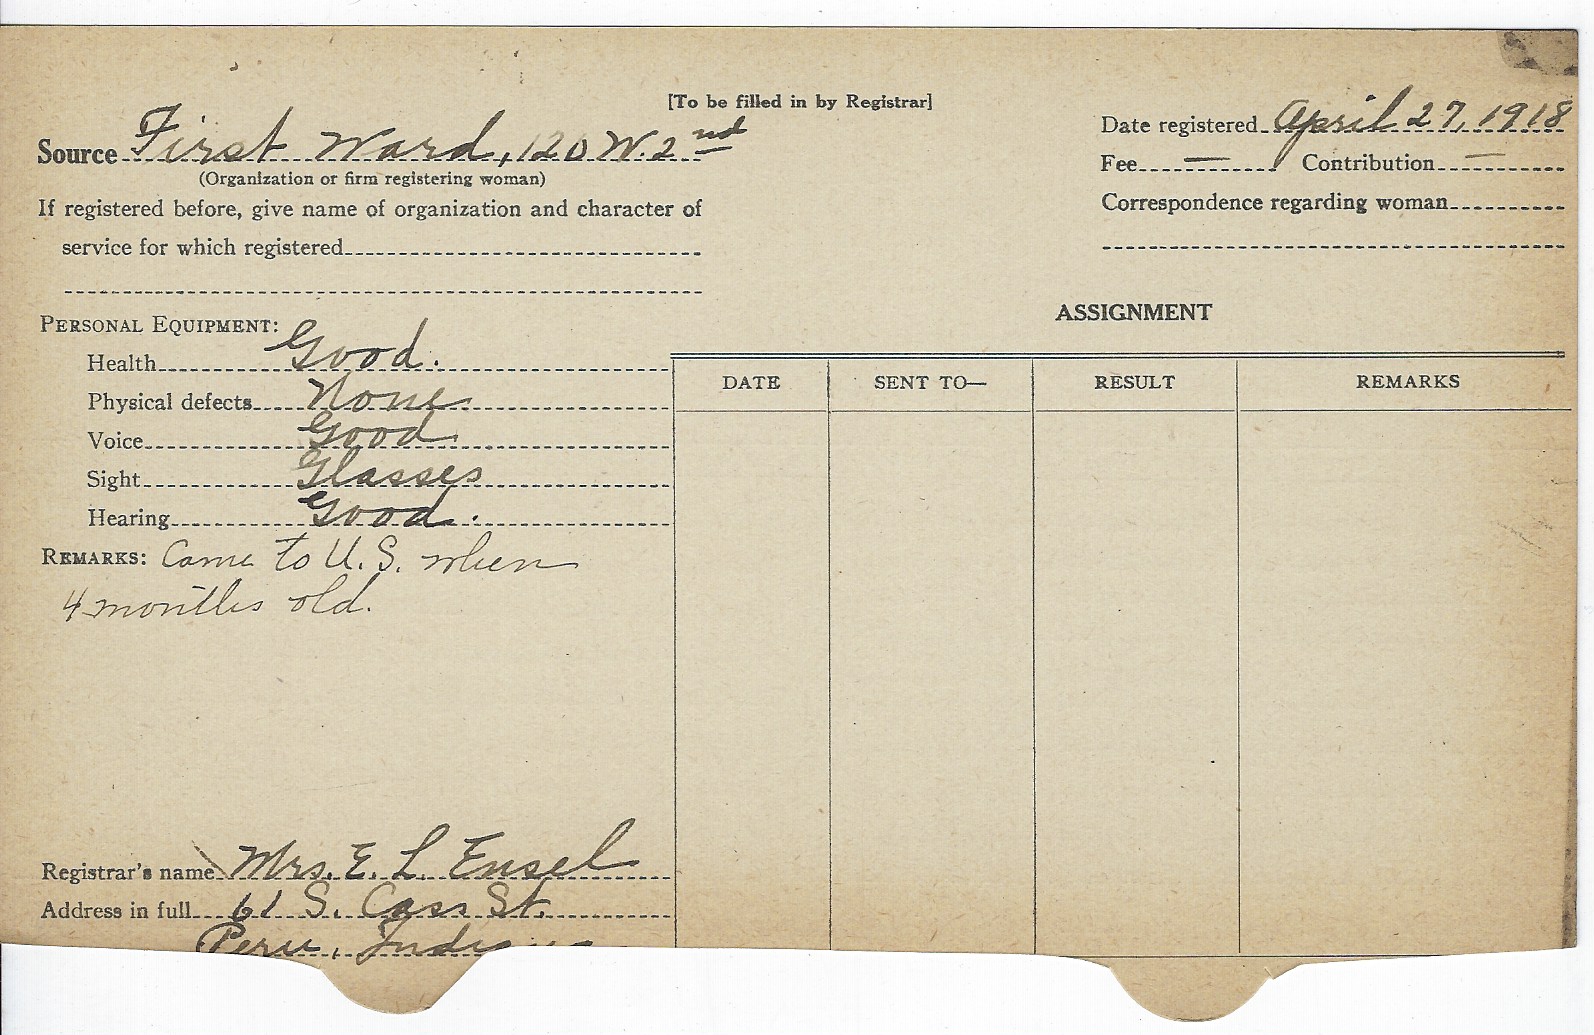 [To be filled in by Registrar]
Source First Ward, 120 W. 2nd
(Organization or firm registering woman)
If registered before, give name of organization and character of
service for which registered
Date registered April 27, 1918
Fee — Contribution —
Correspondence regarding woman
PERSONAL EQUIPMENT:
Health Good.
Physical defects None
Voice Good
Sight Glasses
Hearing Good.
REMARKS: Came to U.S. when
4 months old.
Registrar's name Mrs. E. L. Ensel
Address in full 61 S. Cass St.
Peru, Indiana
ASSIGNMENT
DATE SENT TO— RESULT REMARKS